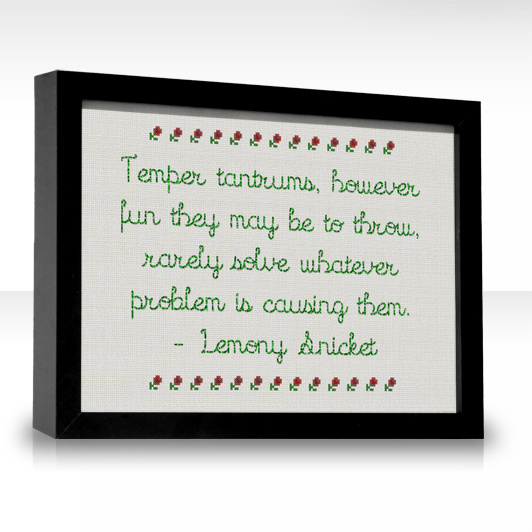 Temper tantrums, however
fun they may be to throw,
rarely solve whatever
problem is causing them.
- Lemony Snicket